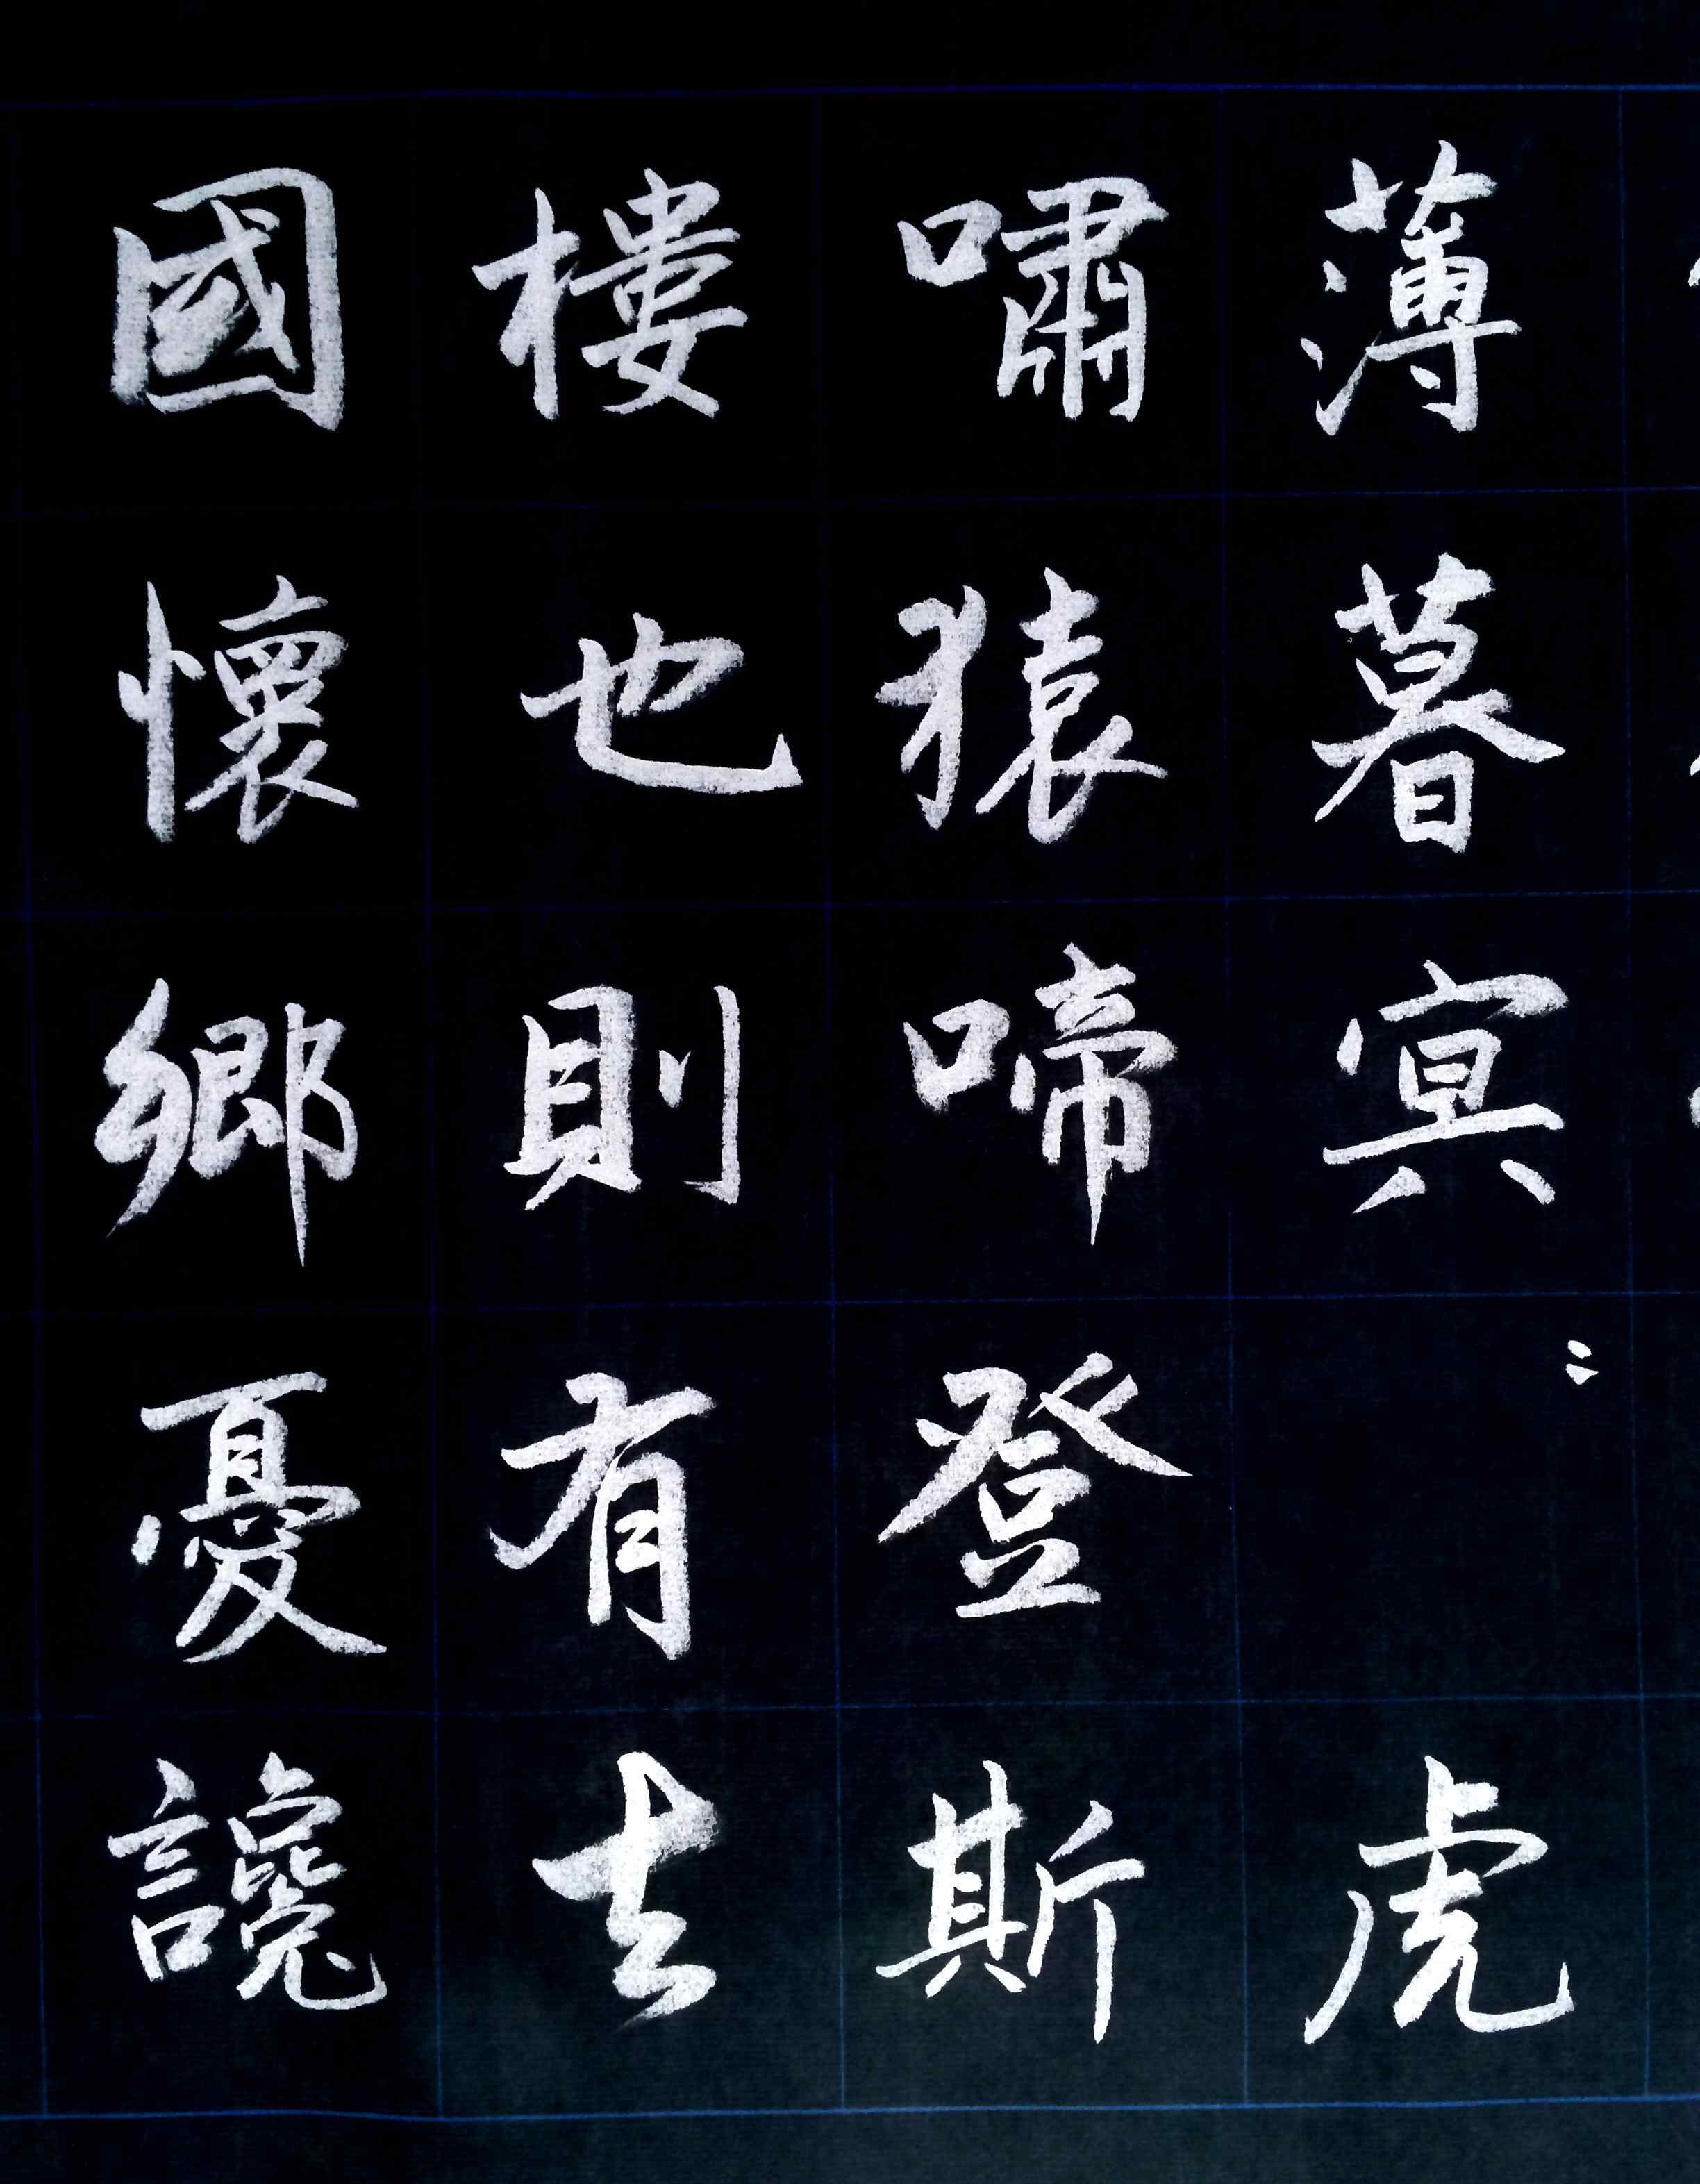 薄暮冥〻虎
嘯猿啼登斯
樓也則有去
國懷鄉憂讒